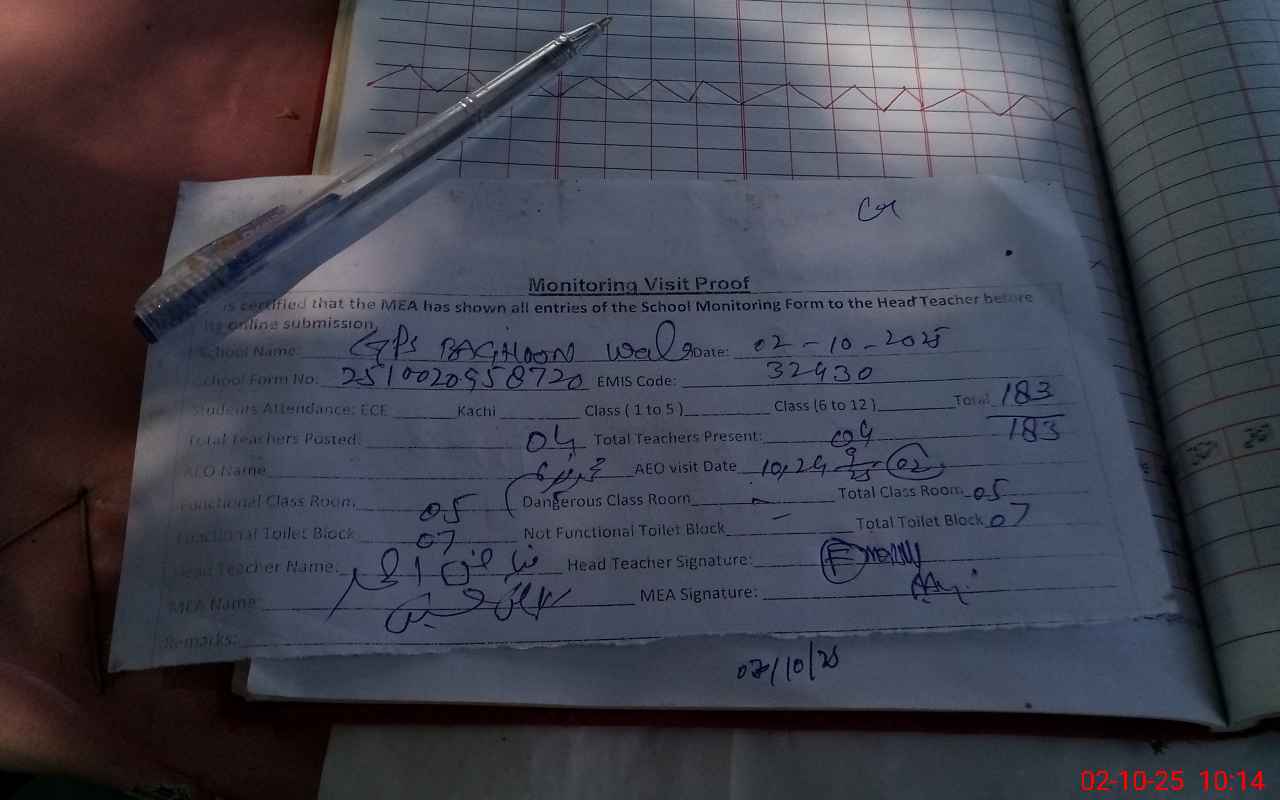 Monitoring Visit Proof
is certified that the MEA has shown all entries of the School Monitoring Form to the Head Teacher before
its online submission.
School Name: GPS BAGHOON Wala Date: 02-10-2025
School Form No: 2510020958720 EMIS Code: 32430
Students Attendance: ECE Kachi Class (1 to 5) Class (6 to 12) Total 183
183
Total Teachers Posted: 04 Total Teachers Present: 04
AEO Name AEO visit Date 10,24 9/25 02
Functional Class Room 05 Dangerous Class Room - Total Class Room 05
Functional Toilet Block 07 Not Functional Toilet Block - Total Toilet Block 07
Head Teacher Name: Head Teacher Signature:
MEA Name: MEA Signature:
Remarks:
02/10/25
02-10-25 10:14